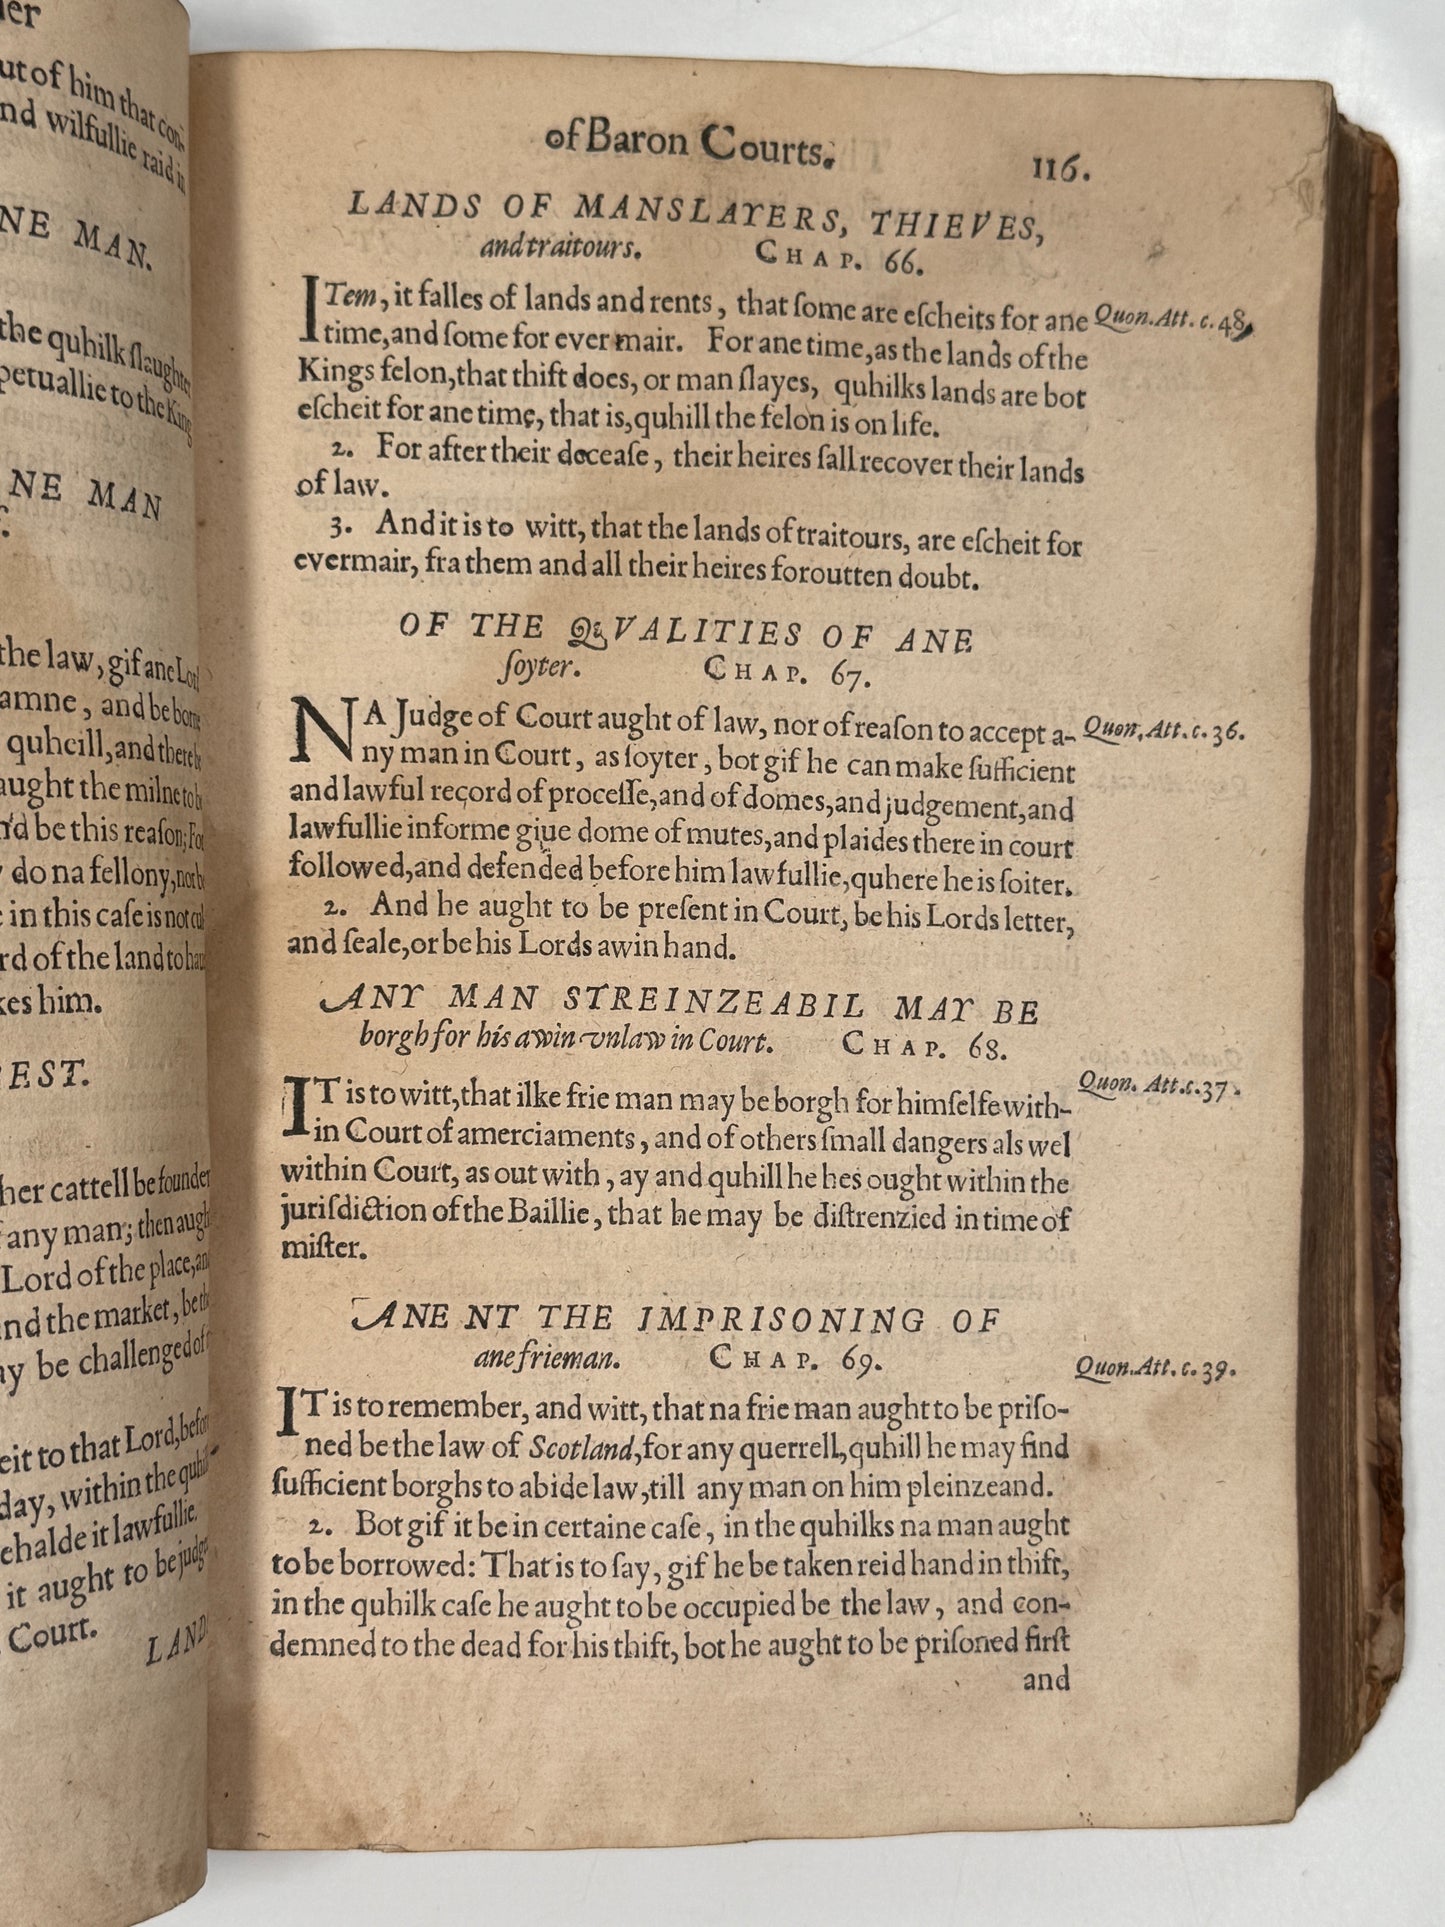 ut of him that con-
nd wilfullie raid in
NE MAN.
the quhilk ſlaughter
petuallie to the King
NE MAN
the law, gif ane Lord
amne, and be borne
quheill, and there be
aught the milne to be
d be this reaſon; For
do na fellony, not be
in this caſe is not cul
rd of the land to hau
kes him.
EST.
her cattell be founden
any man; then aught
Lord of the place, and
nd the market, be the
ay be challenged of
eit to that Lord, before
day, within the quhilk
ehalde it lawfullie.
it aught to be judge
Court.
LANDS
of Baron Courts.
116.
LANDS OF MANSLAYERS, THIEVES,
and traitours. CHAP. 66.
ITem, it falles of lands and rents, that ſome are eſcheits for ane Quon. Att. c. 48,
time, and ſome for ever mair. For ane time, as the lands of the
Kings felon, that thift does, or man ſlayes, quhilks lands are bot
eſcheit for ane time, that is, quhill the felon is on life.
2. For after their deceaſe, their heires ſall recover their lands
of law.
3. And it is to witt, that the lands of traitours, are eſcheit for
evermair, fra them and all their heires foroutten doubt.
OF THE QVALITIES OF ANE
ſoyter. CHAP. 67.
NA Judge of Court aught of law, nor of reaſon to accept a- Quon. Att. c. 36.
ny man in Court, as ſoyter, bot gif he can make ſufficient
and lawful record of proceſſe, and of domes, and judgement, and
lawfullie informe giue dome of mutes, and plaides there in court
followed, and defended before him lawfullie, quhere he is ſoiter.
2. And he aught to be preſent in Court, be his Lords letter,
and ſeale, or be his Lords awin hand.
ANY MAN STREINZEABIL MAY BE
borgh for his awin vnlaw in Court. CHAP. 68.
IT is to witt, that ilke frie man may be borgh for himſelfe with- Quon. Att. c. 37.
in Court of amerciaments, and of others ſmall dangers als wel
within Court, as out with, ay and quhill he hes ought within the
juriſdiction of the Baillie, that he may be diſtrenzied in time of
miſter.
ANENT THE IMPRISONING OF
ane frieman. CHAP. 69.
Quon. Att. c. 39.
IT is to remember, and witt, that na frie man aught to be priſo-
ned be the law of Scotland, for any querrell, quhill he may find
ſufficient borghs to abide law, till any man on him pleinzeand.
2. Bot gif it be in certaine caſe, in the quhilks na man aught
to be borrowed: That is to ſay, gif he be taken reid hand in thift,
in the quhilk caſe he aught to be occupied be the law, and con-
demned to the dead for his thift, bot he aught to be priſoned firſt
and